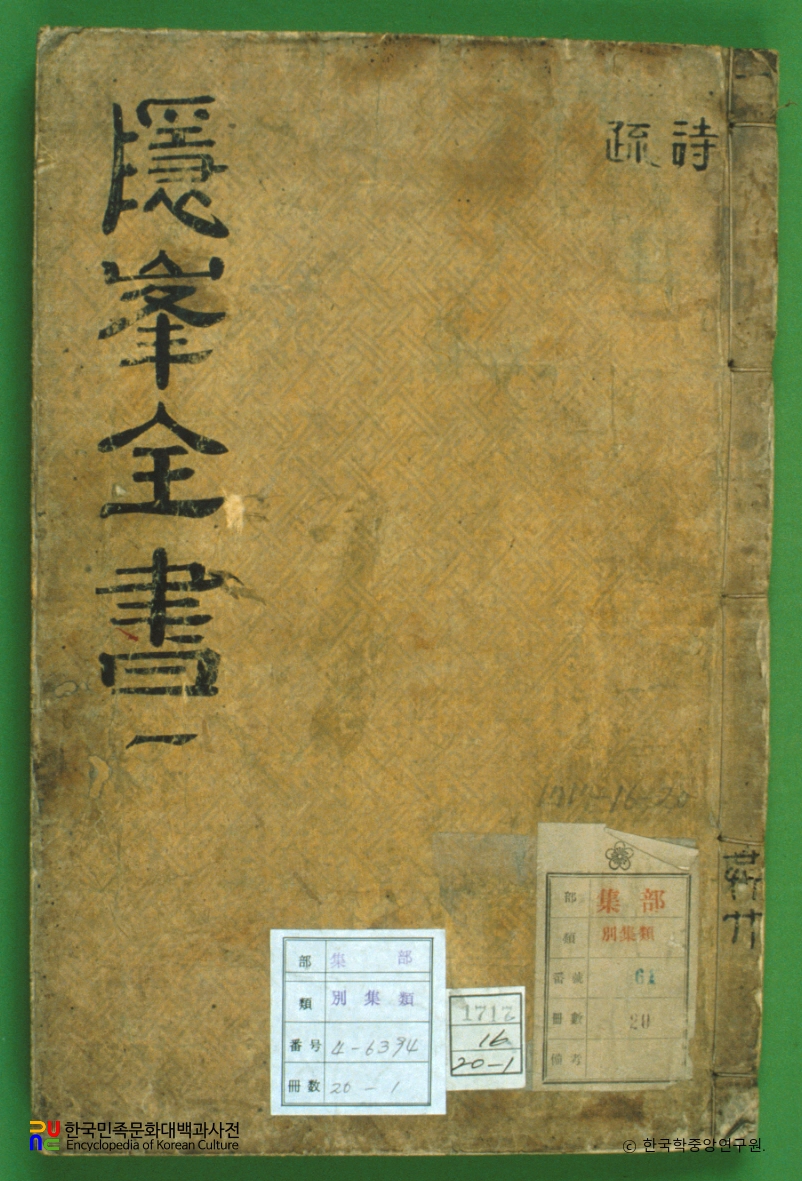 隱峯全書 一
詩
疏
共卄
1717-16-20
部 集部
類 別集類
番號 61
冊數 20
備考
部 集部
類 別集類
番号 4-6394
冊数 20-1
1717
16
20-1
한국민족문화대백과사전
Encyclopedia of Korean Culture
ⓒ 한국학중앙연구원.